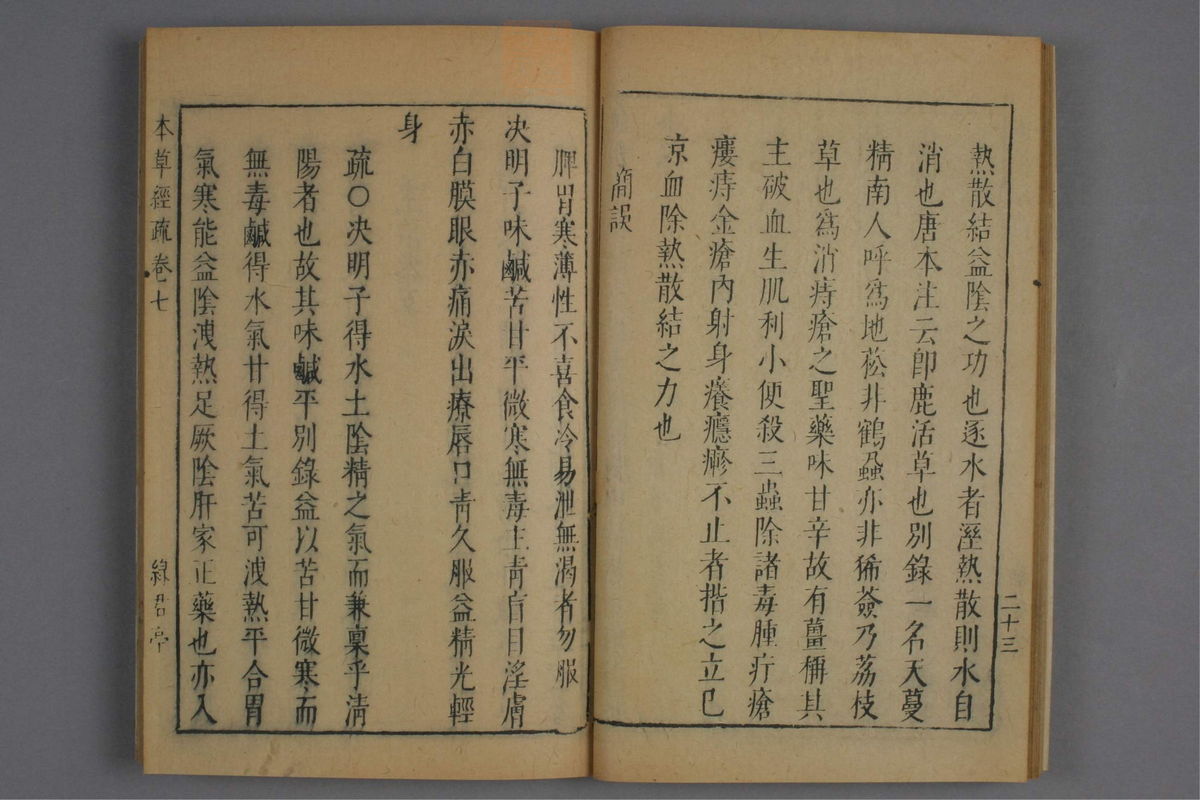 二十三
熱散結益陰之功也逐水者溼熱散則水自
消也唐本注云卽鹿活草也別錄一名天蔓
精南人呼爲地菘非鶴蝨亦非豨薟乃荔枝
草也爲消痔瘡之聖藥味甘辛故有薑稱其
主破血生肌利小便殺三蟲除諸毒腫疔瘡
瘻痔金瘡內射身癢癮瘮不止者揩之立已
凉血除熱散結之力也
簡誤
脾胃寒薄性不喜食冷易泄無渴者勿服
决明子味鹹苦甘平微寒無毒主靑盲目淫膚
赤白膜眼赤痛淚出療唇口靑久服益精光輕
身
疏〇决明子得水土陰精之氣而兼稟乎淸
陽者也故其味鹹平別錄益以苦甘微寒而
無毒鹹得水氣甘得土氣苦可洩熱平合胃
氣寒能益陰洩熱足厥陰肝家正藥也亦入
本草經疏卷七
綠君亭